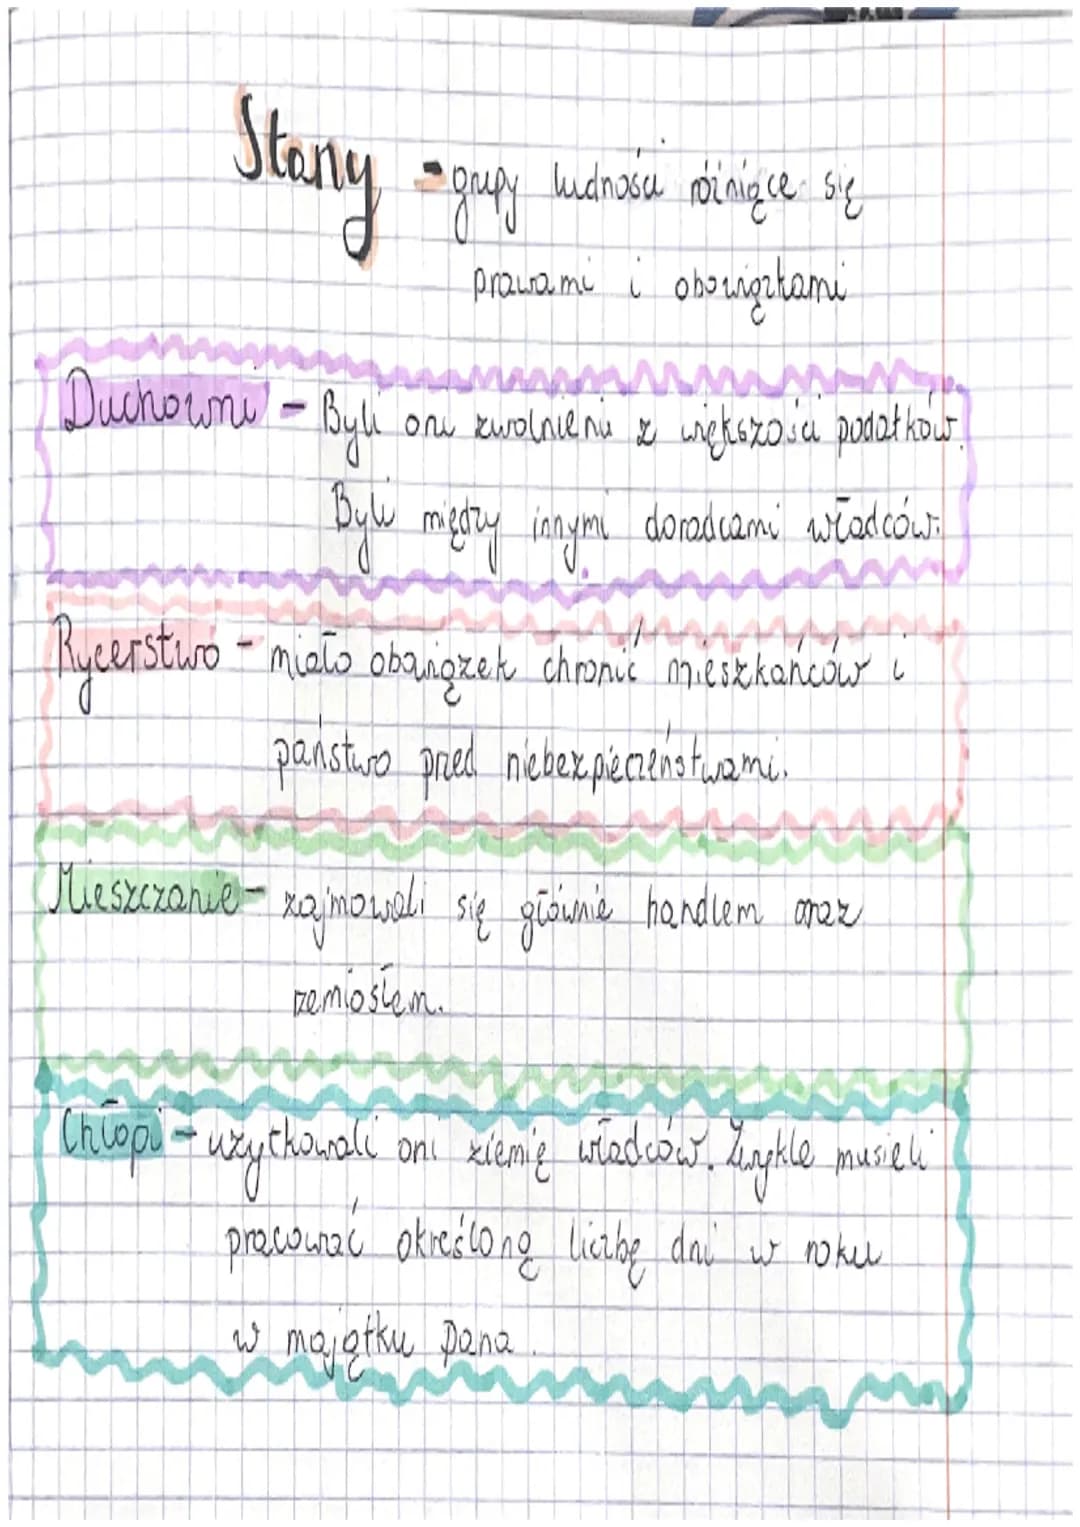 Stany - grupy ludności różniące się
prawami i obowiązkami
Duchowni - Byli oni zwolnieni z większości podatków.
Byli między innymi doradcami władców.
Rycerstwo - miało obowiązek chronić mieszkańców i
państwo przed niebezpieczeństwami.
Mieszczanie - zajmowali się głównie handlem oraz
rzemiosłem.
Chłopi - użytkowali oni ziemię władców. Zwykle musieli
pracować określoną liczbę dni w roku
w majątku pana.